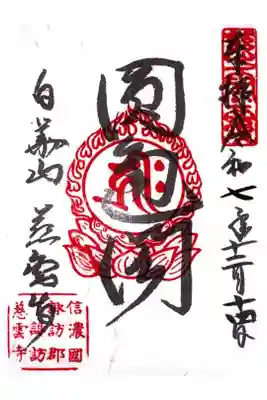 奉拝 令和七年十二月
圓通閣
白華山 慈雲寺
信濃國
諏訪郡
下諏訪
慈雲寺